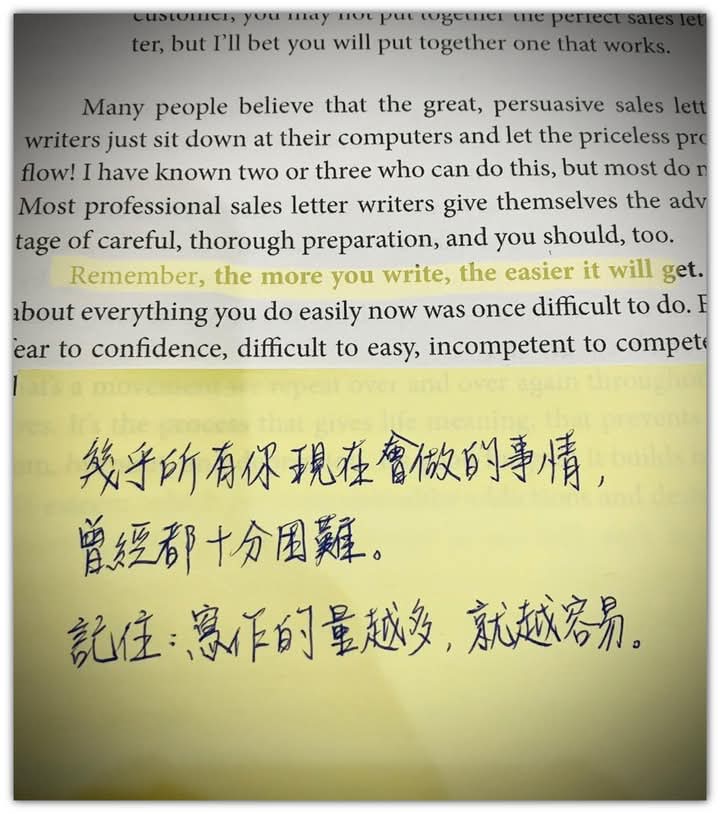 customer, you may not put together the perfect sales let
ter, but I'll bet you will put together one that works.
Many people believe that the great, persuasive sales lett
writers just sit down at their computers and let the priceless pro
flow! I have known two or three who can do this, but most do n
Most professional sales letter writers give themselves the adv
tage of careful, thorough preparation, and you should, too.
Remember, the more you write, the easier it will get.
about everything you do easily now was once difficult to do. F
ear to confidence, difficult to easy, incompetent to compete
that's a movement we repeat over and over again throughout
ves. It's the process that gives life meaning, that prevents
幾乎所有你現在會做的事情，
曾經都十分困難。
記住：寫作的量越多，就越容易。